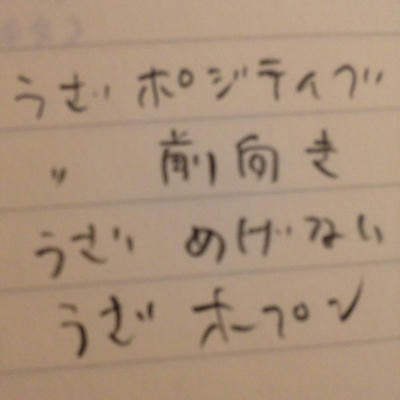 うざ ポジティブ
〃 前向き
うざい めげない
うざ オープン